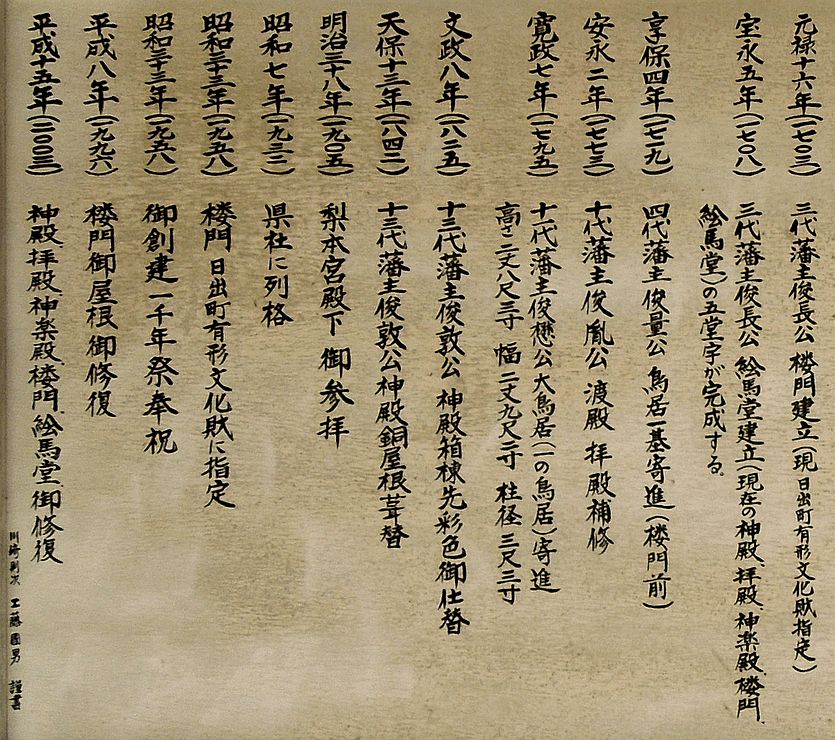 元禄十六年(一七〇三) 三代藩主俊長公 楼門建立(現 日出町有形文化財指定)
宝永五年(一七〇八) 三代藩主俊長公 絵馬堂建立(現在の神殿、拝殿、神楽殿、楼門、
絵馬堂)の五堂宇が完成する。
享保四年(一七一九) 四代藩主俊量公 鳥居一基寄進(楼門前)
安永二年(一七七三) 十代藩主俊胤公 渡殿 拝殿補修
寛政七年(一七九五) 十一代藩主俊懋公 大鳥居(一の鳥居)寄進
高さ二丈八尺三寸 幅 二丈九尺二寸 柱径 三尺三寸
文政八年(一八二五) 十三代藩主俊敦公 神殿箱棟先彩色御仕替
天保十三年(一八四二) 十三代藩主俊敦公神殿銅屋根葺替
明治三十八年(一九〇五) 梨本宮殿下 御参拝
昭和七年(一九三二) 県社に列格
昭和三十三年(一九五八) 楼門 日出町有形文化財に指定
昭和三十三年(一九五八) 御創建一千年祭奉祝
平成八年(一九九六) 楼門御屋根御修復
平成十五年(二〇〇三) 神殿、拝殿、神楽殿、楼門、絵馬堂、御修復
工藤國男 謹書